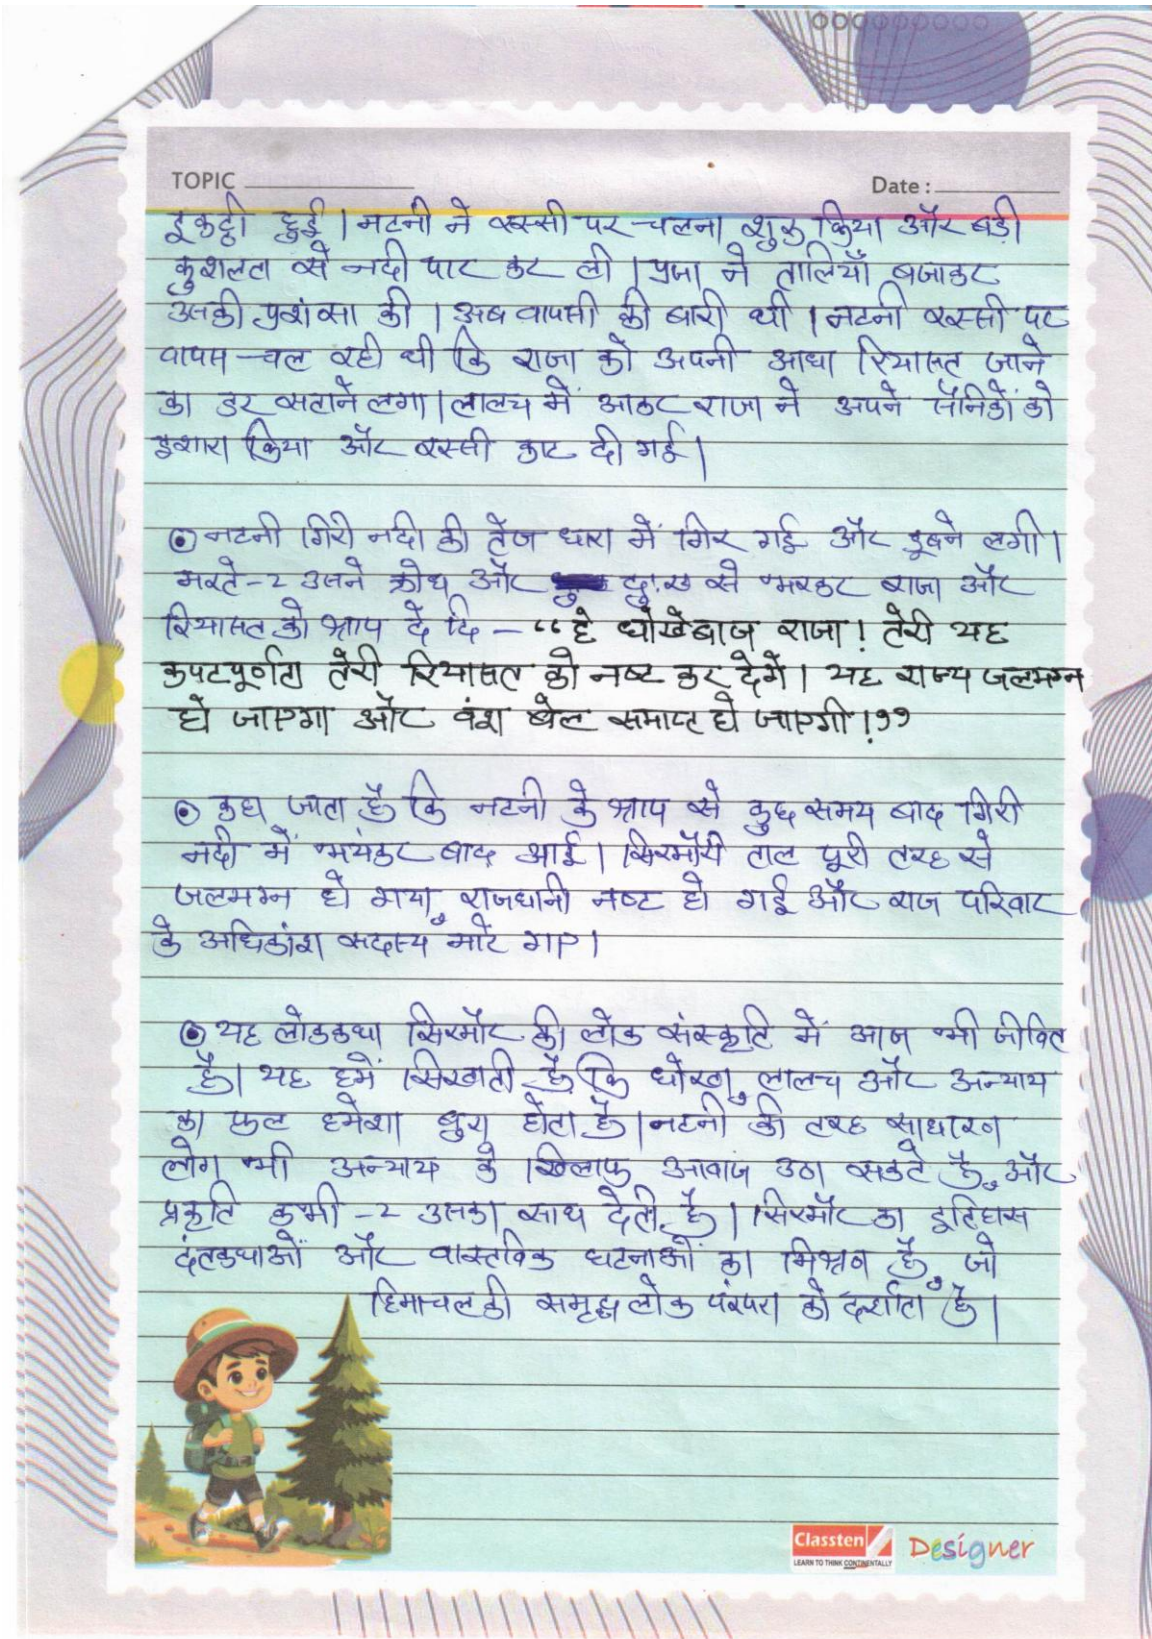 TOPIC
Date :
इकट्ठी हुई। नटनी ने रस्सी पर चलना शुरू किया और बड़ी
कुशलता से नदी पार कर ली। प्रजा ने तालियाँ बजाकर
उसकी प्रशंसा की। अब वापसी की बारी थी। नटनी रस्सी पर
वापस चल रही थी कि राजा को अपनी आधा रियासत जाने
का डर सताने लगा। लालच में आकर राजा ने अपने सैनिकों को
इशारा किया और रस्सी काट दी गई।
नटनी गिरी नदी की तेज धारा में गिर गई और डूबने लगी।
मरते-2 उसने क्रोध और दुःख से भरकर राजा और
रियासत को श्राप दे दि - “हे धोखेबाज राजा! तेरी यह
कपटपूर्णता तेरी रियासत को नष्ट कर देगें। यह राज्य जलमग्न
हो जाएगा और वंश बेल समाप्त हो जाएगी!”
कहा जाता है कि नटनी के श्राप से कुछ समय बाद गिरी
नदी में भयंकर बाढ़ आई। सिरमौरी ताल पूरी तरह से
जलमग्न हो गया, राजधानी नष्ट हो गई और राज परिवार
के अधिकांश सदस्य मारे गए।
यह लोककथा सिरमौर की लोक संस्कृति में आज भी जीवित
है। यह हमें सिखाती है कि धोखा, लालच और अन्याय
का फल हमेशा बुरा होता है। नटनी की तरह साधारण
लोग भी अन्याय के खिलाफ आवाज उठा सकते है, और
प्रकृति कभी-2 उसका साथ देती है। सिरमौर का इतिहास
दंतकथाओं और वास्तविक घटनाओं का मिश्रण है, जो
हिमाचल की समृद्ध लोक पंरपरा को दर्शाता है।
Classten
LEARN TO THINK CONTINENTALLY
Designer